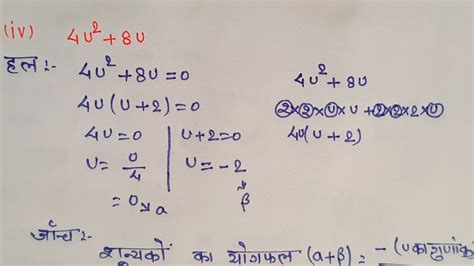 (iv) 4u²+8u
हल :-
4u²+8u=0
4u(u+2)=0
4u=0 | u+2=0
u=0/4 | u=-2
=0→α
β
4u²+8u
2×2×u×u+2×2×2×u
4u(u+2)
जाँच :-
शून्यकों का योगफल (α+β) = -(u का गुणांक